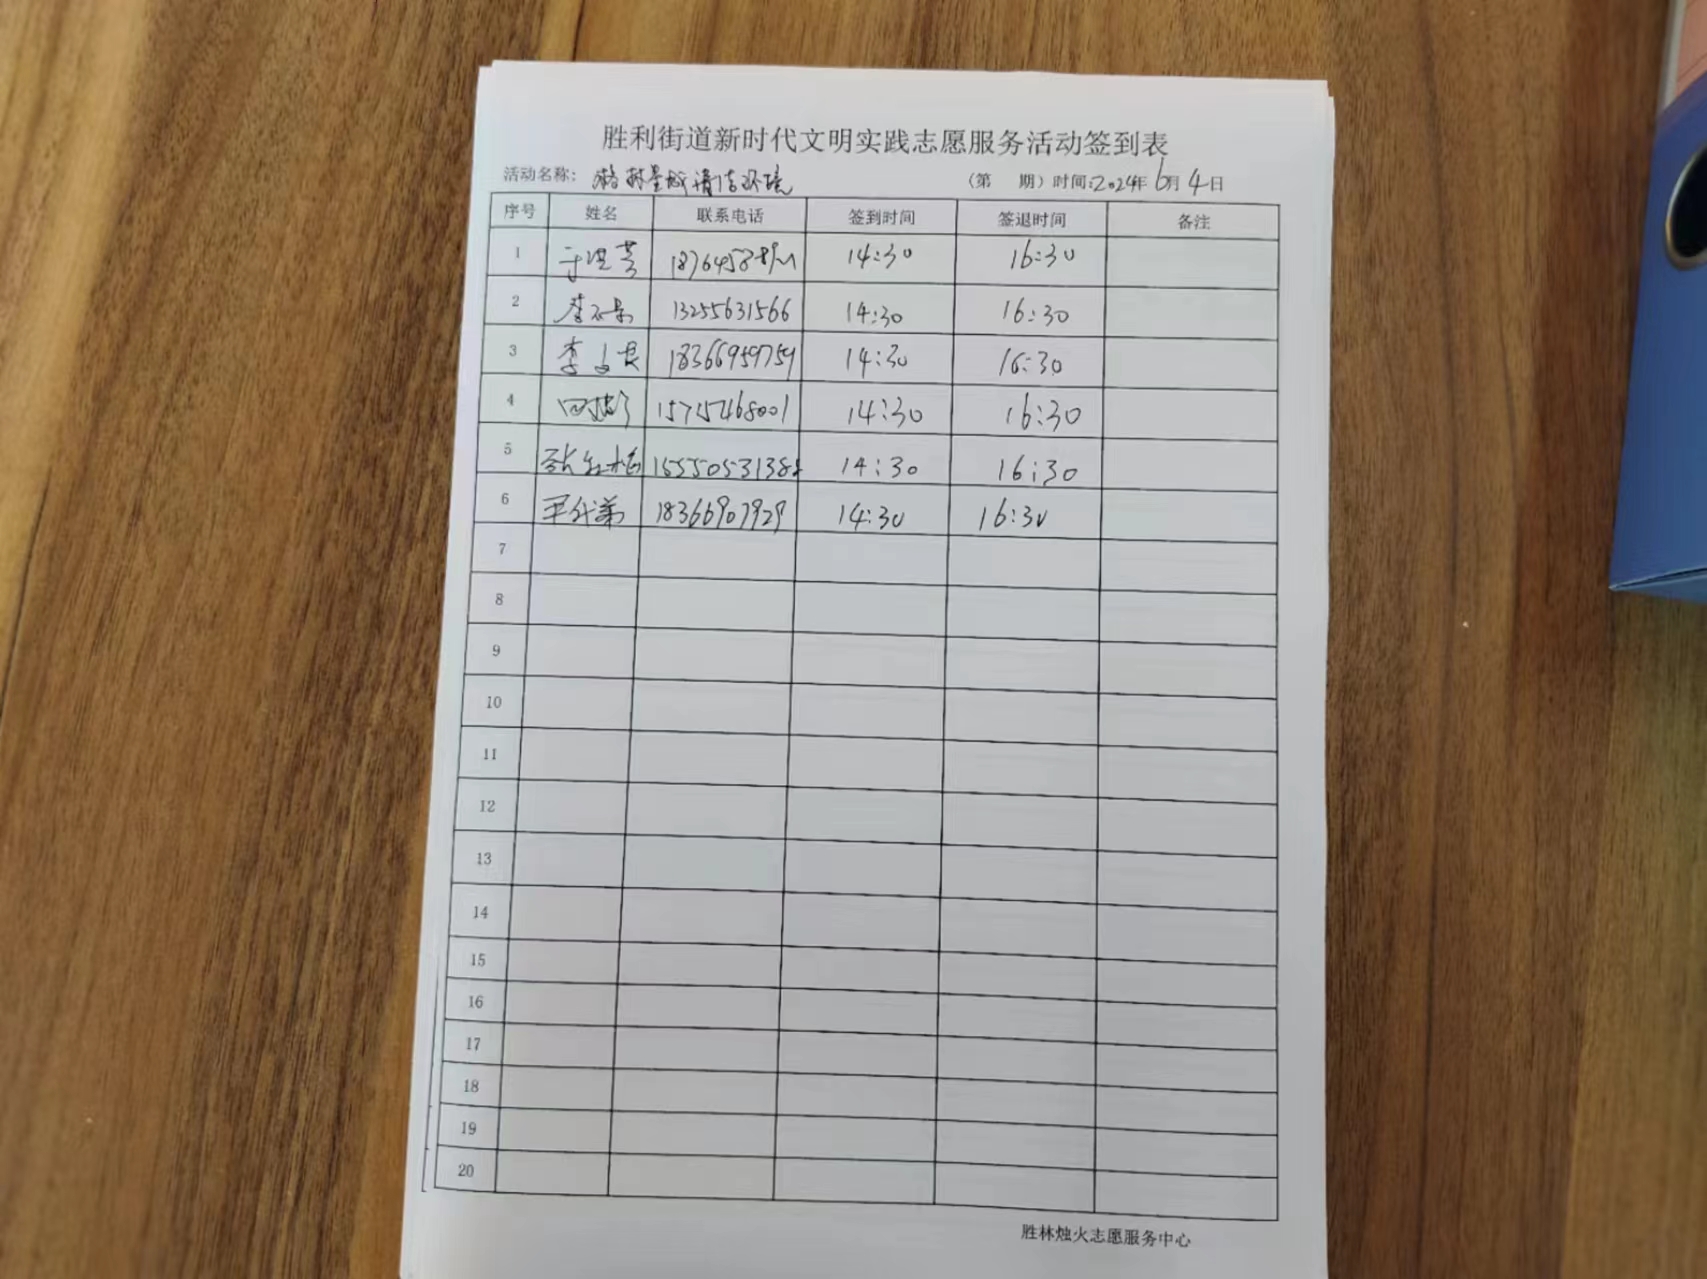 胜利街道新时代文明实践志愿服务活动签到表
活动名称: 格林星城清洁环境 (第 期) 时间:2024年6月4日
序号 姓名 联系电话 签到时间 签退时间 备注
1 于洪芳 14:30 16:30
2 李 13255631566 14:30 16:30
3 李 18366959759 14:30 16:30
4 15715468001 14:30 16:30
5 张红梅 14:30 16:30
6 18366907929 14:30 16:30
7
8
9
10
11
12
13
14
15
16
17
18
19
20
胜林烛火志愿服务中心